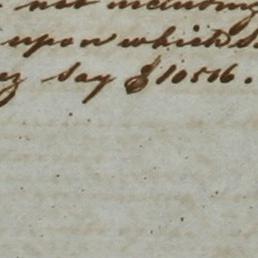 not including
upon which
say $10516.